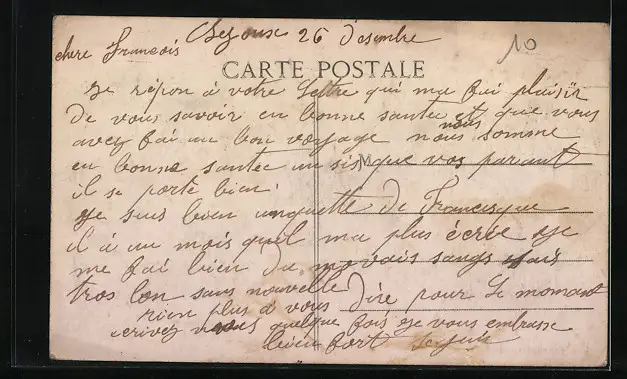 26 Desembre
10
chere Francois
CARTE POSTALE
Je répon à votre Lettre qui ma fai plaisir
De vous savoir en bonne santee et que vous
avez fai un bon voyage nous nous somme
en bonne santee M que vos parant
il se porte bien
Je suis bien unquette De Francisque
il à un mois quel ma plus écrie Je
me fai bien du movais sangs
tros lon sans nouvelle
rien plus à vous Dire pour Le momant
ecrivez nous quelque fois Je vous embrasse
bien fort